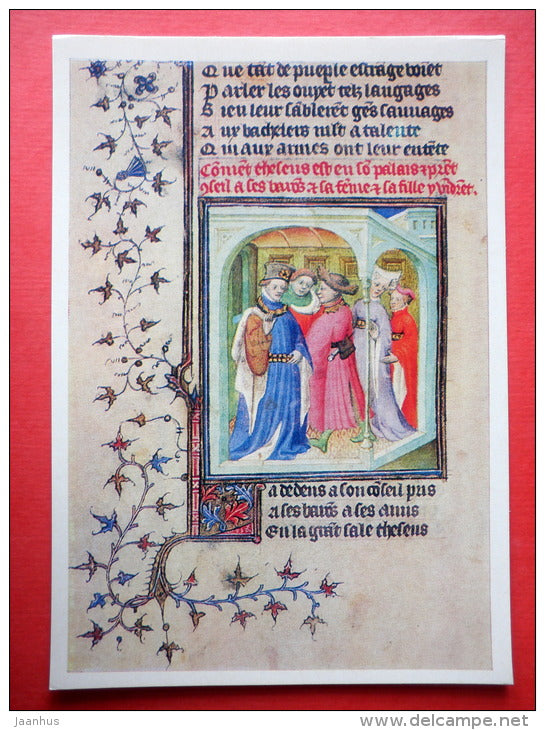 Que tāt de pueple estrāge voiēt
Parler les ouyēt telz laugages
Bien leur sāblerēt gēs sauuages
Aux bachelers mlt a talente
Qui aux armes ont leur entēte
Cōmēt theseus est en sō palais & prēt
9seil a ses barōs & sa fēme & sa fille y vīdrēt.
La dedens a son cōseil pris
A ses barōs a ses amis
En la grāt sale theseus
Jaanhus
www.delcampe.net